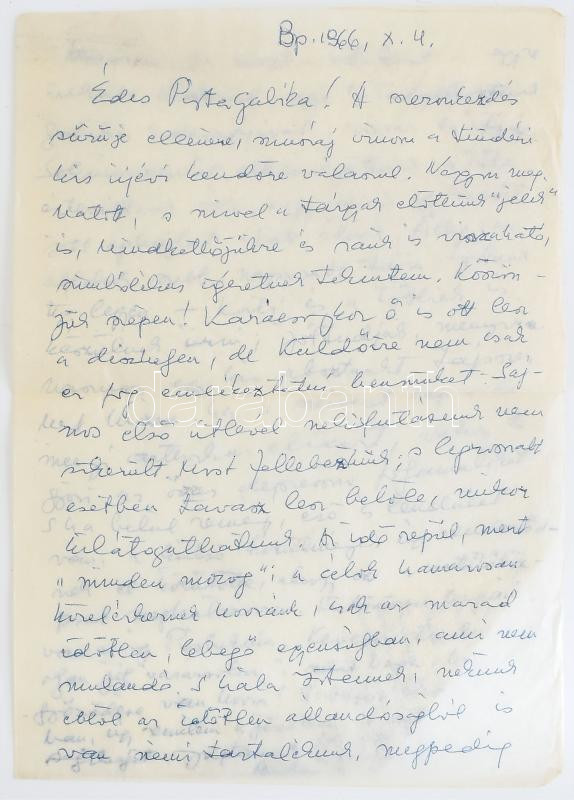 Bp. 1966, X. 4.
Édes PistaGalika! A szemkezdés
sűrűje ellenére, muszáj írnom a tündéri
kis újévi kendőre válaszul. Nagyon meg-
hatott, s mivel a tárgyak előttünk "jelek"
is, mindkettőjükre és ránk is visszaható,
szimbólikus ígéretnek tekintem. Köszön-
jük szépen! Karácsonykor ő is ott lesz
a díszhelyen, de küldőire nem csak
ez fog emlékeztetni bennünket. Saj-
nos első útlevél nekifutásunk nem
sikerült. Most fellebbezünk, s legrosszabb
esetben tavasz lesz belőle, mikor
kilátogathatunk. Az idő repül, mert
"minden mozog"; a célok hamarosan
közelérkeznek hozzánk, csak az marad
időtlen, lebegő egységben, ami nem
mulandó. S hála Istennek, nekünk
ebből az időtlen állandóságból is
van némi tartalékunk, mégpedig
darabanth